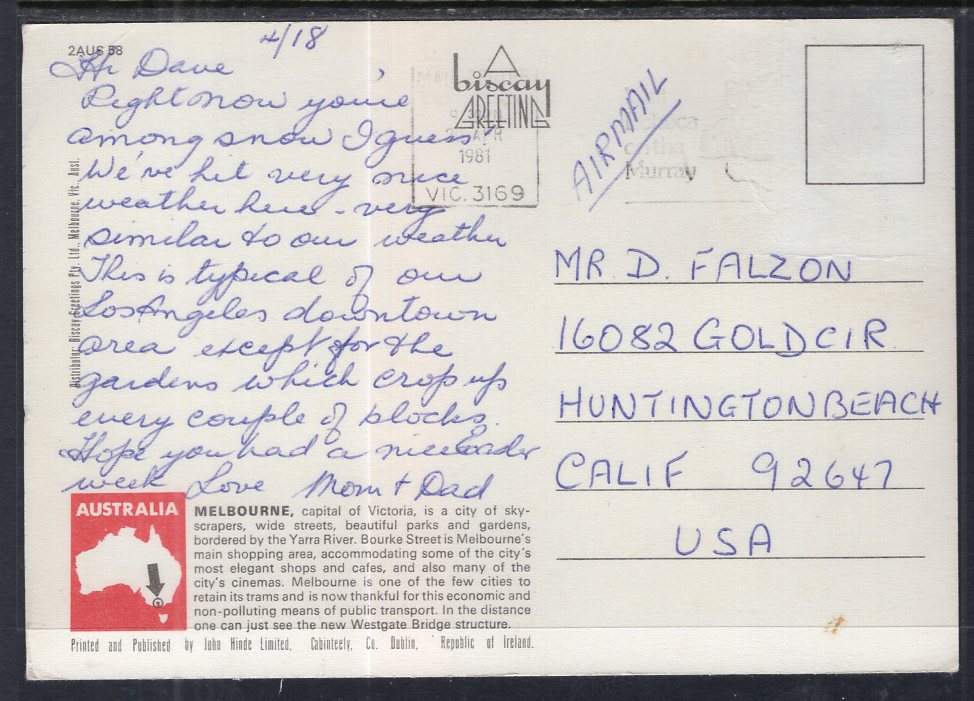 2AUS 58
4/18
Hi Dave
Right now you're
among snow I guess!
We've hit very nice
weather here - very
similar to our weather
This is typical of our
Los Angeles downtown
area except for the
gardens which crop up
every couple of blocks.
Hope you had a nice Easter
week Love Mom + Dad
Distributor: Biscay Greetings Pty. Ltd., Melbourne, Vic. Aust.
biscay
GREETINGS
APR
1981
VIC. 3169
AIRMAIL
on the
Murray
MR. D. FALZON
16082 GOLD CIR.
HUNTINGTON BEACH
CALIF 92647
USA
AUSTRALIA
MELBOURNE, capital of Victoria, is a city of sky-
scrapers, wide streets, beautiful parks and gardens,
bordered by the Yarra River. Bourke Street is Melbourne's
main shopping area, accommodating some of the city's
most elegant shops and cafes, and also many of the
city's cinemas. Melbourne is one of the few cities to
retain its trams and is now thankful for this economic and
non-polluting means of public transport. In the distance
one can just see the new Westgate Bridge structure.
Printed and Published by John Hinde Limited, Cabinteely, Co. Dublin, Republic of Ireland.